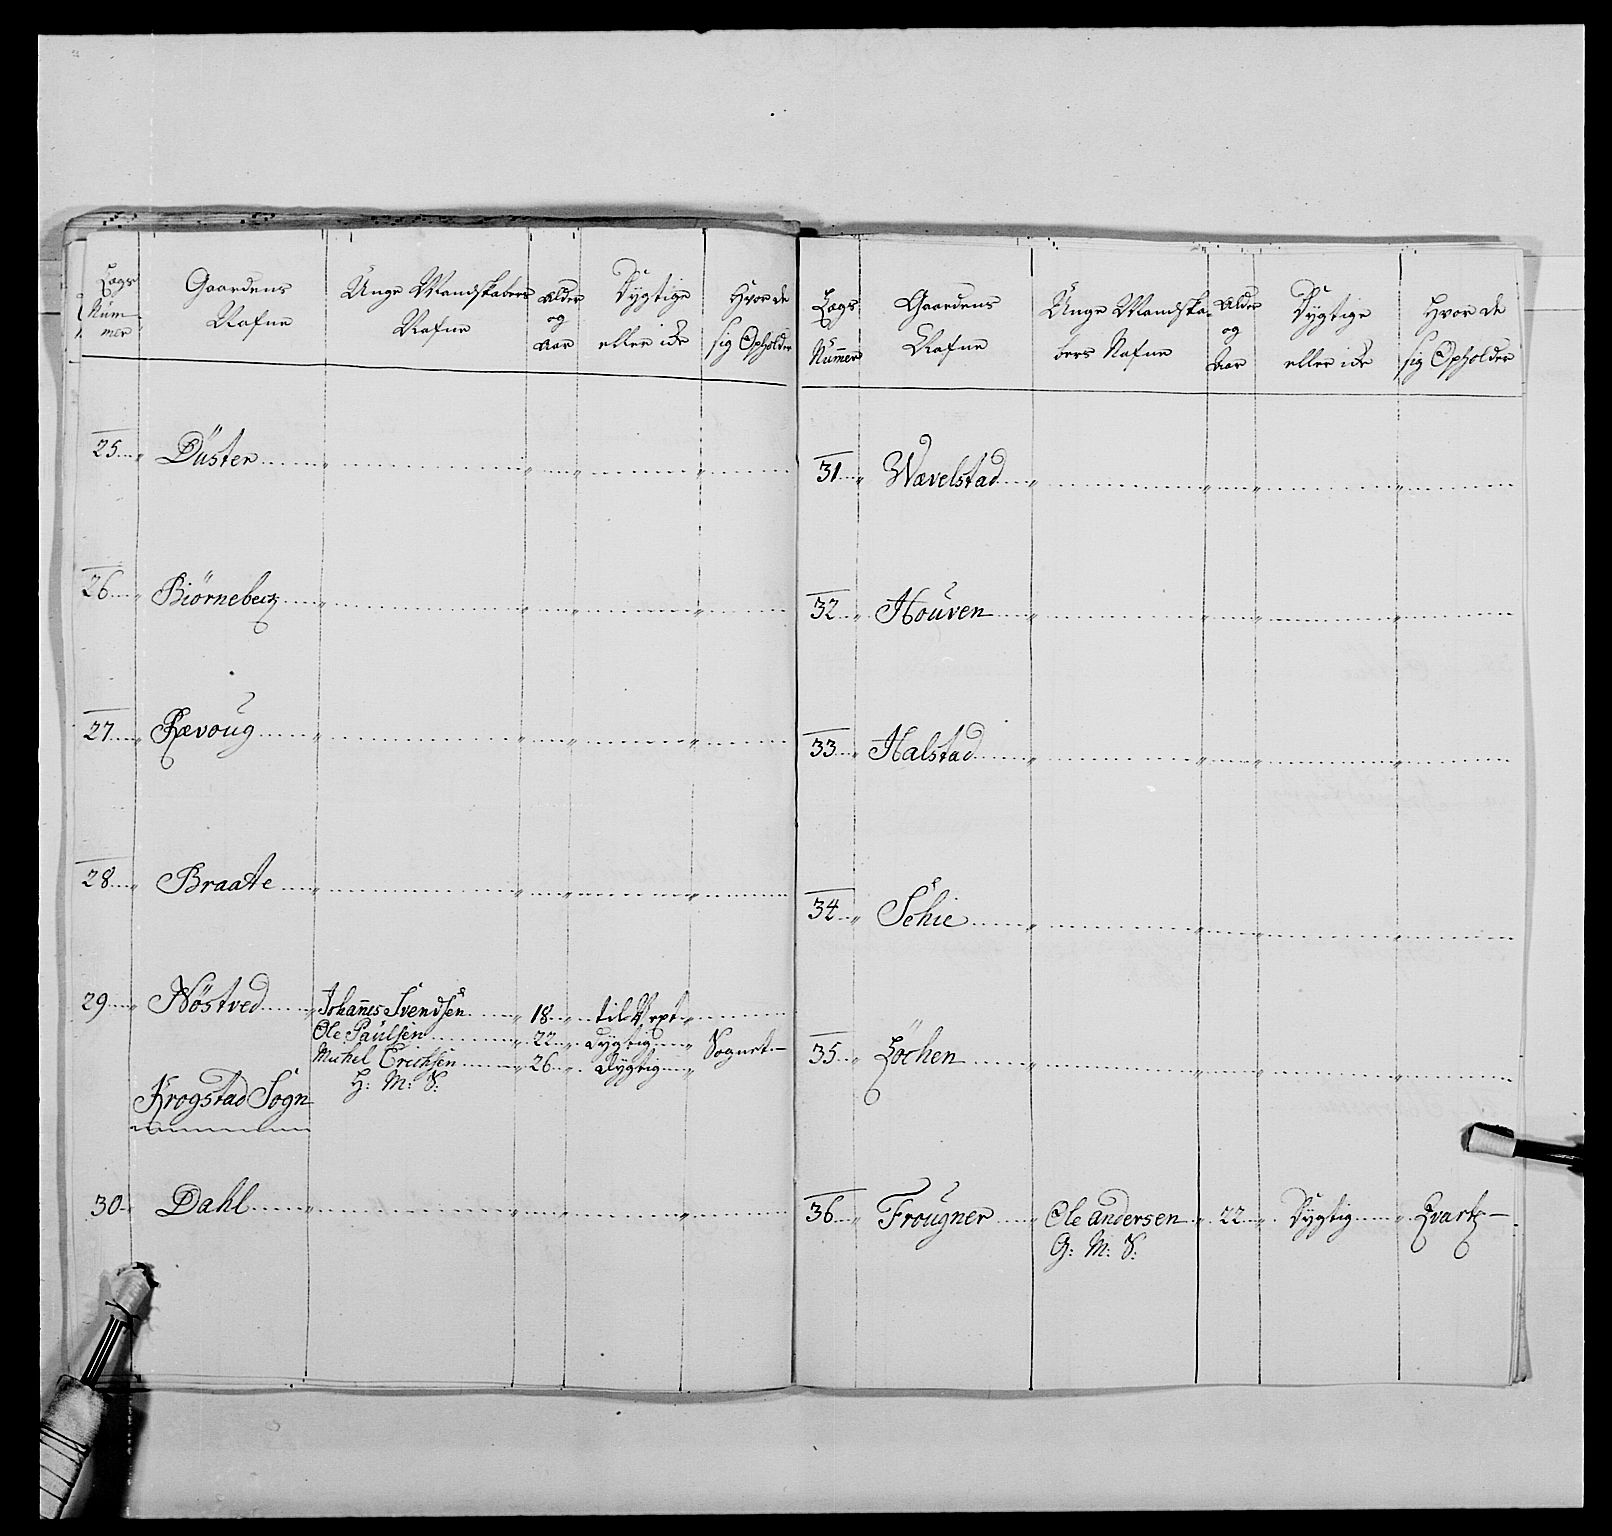 Lags Nummer | Gaardens Nafne | Unge Mandskabers Nafne | Alder og Aar | Dygtige eller icke | Hvor de sig Opholder
25 Düster
26 Biörneberg
27 Rævoug
28 Braate
29 Nöstved Johannes Svendsen 18 til Vext
Ole Paulsen 22 Dygtig Sognet
Michel Erichsen 26 Dygtig
H: M: S:
Krogstad Sogn
30 Dahl
Lags Nummer | Gaardens Nafne | Unge Mandskabers Nafne | Alder og Aar | Dygtige eller icke | Hvor de sig Opholder
31 Wævelstad
32 Houven
33 Halstad
34 Schie
35 Löchen
36 Frougner Ole Andersen 22 Dygtig
G: M: S: